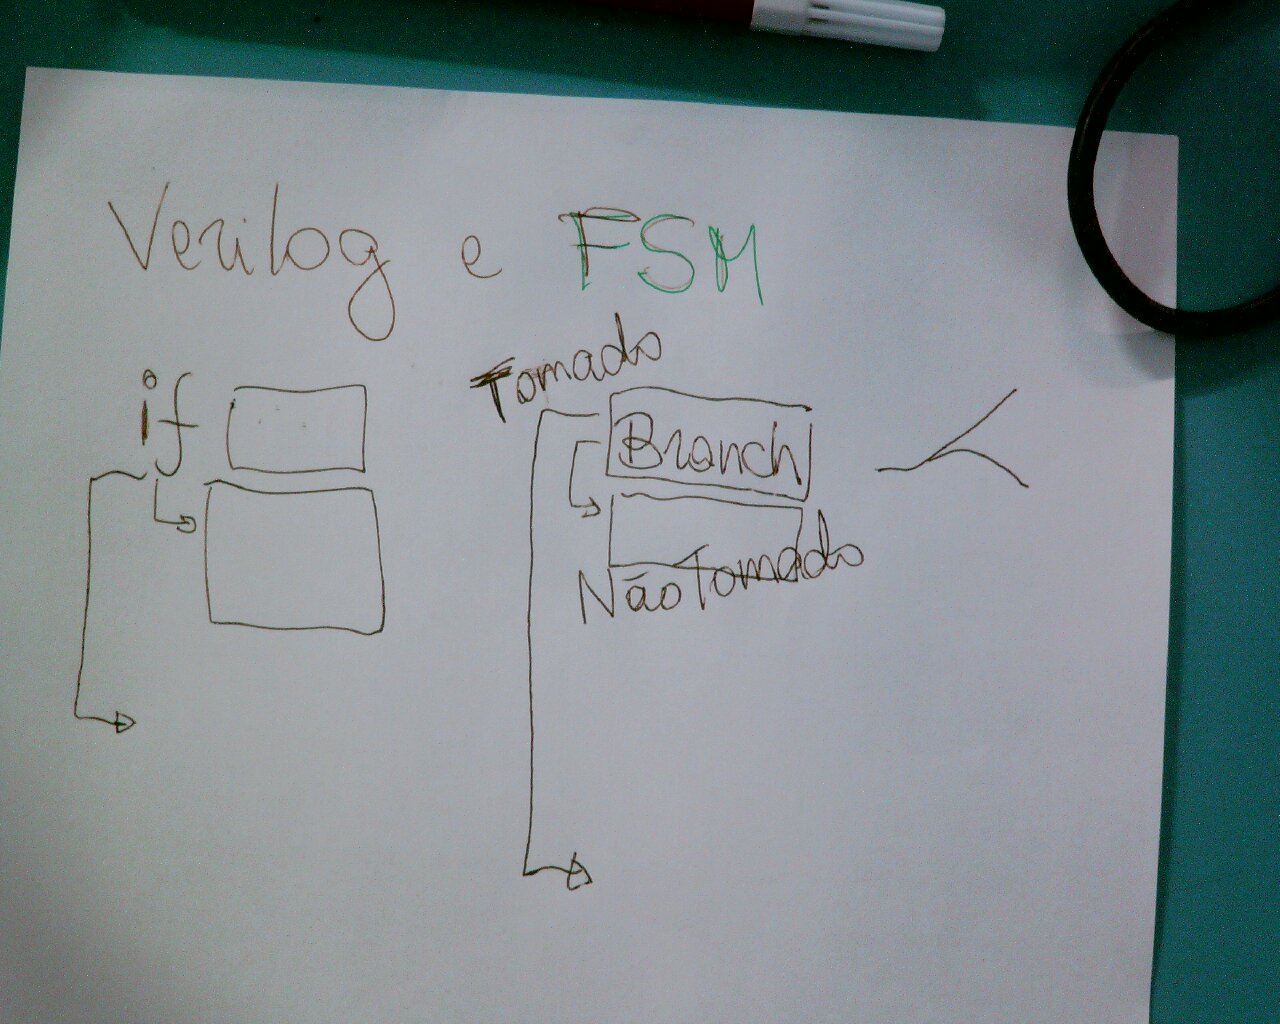 Verilog e FSM
if
Tomado
Branch
Não Tomado